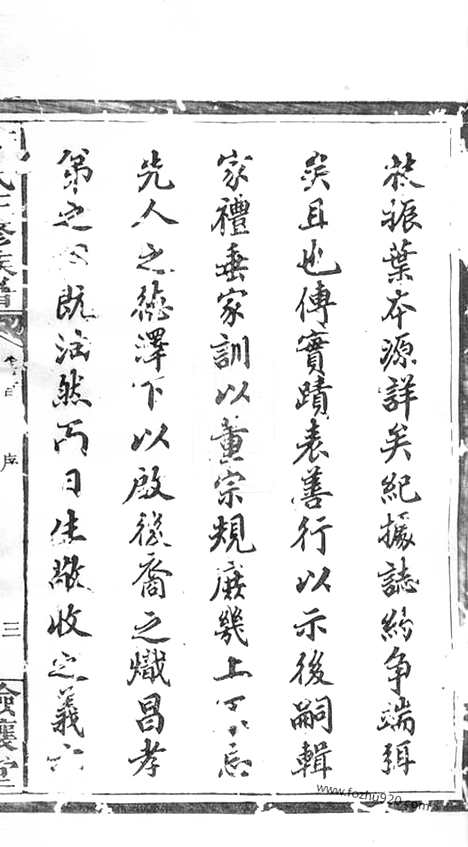 於振葉本源詳矣紀據誌約爭端弭
矣且也傳實蹟表善行以示後嗣輯
家禮垂家訓以董宗規庶幾上不忘
先人之德澤下以啟後裔之熾昌孝
弟之心既油然而日生敬收之義
氏 修族譜
卷首
序
三
堂
www.fozhu920.com